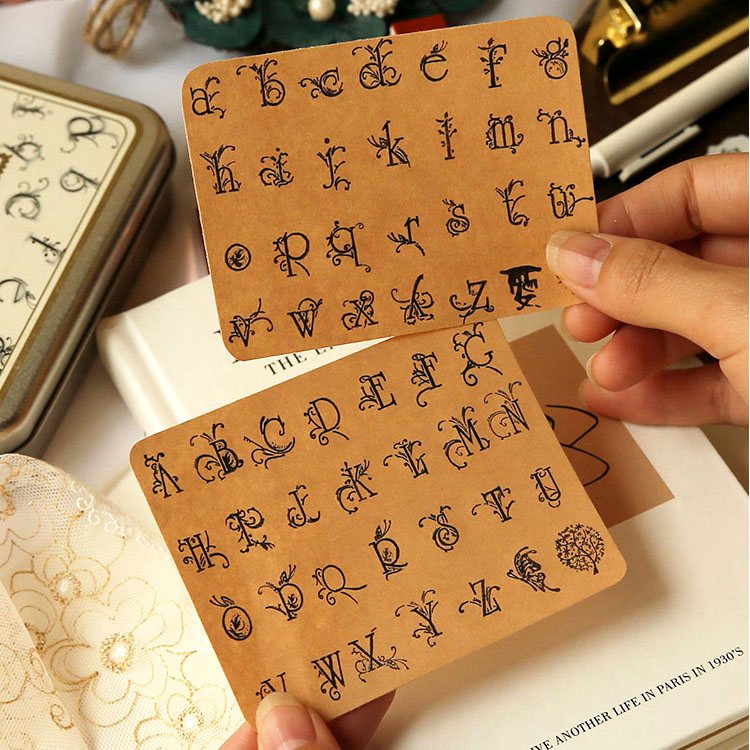 a b c d e f g
h i j k l m n
o p q r s t u
v w x y z
THE
A B C D E F G
H I J K L M N
O P Q R S T U
V W X Y Z
ANOTHER LIFE IN PARIS IN 1930'S